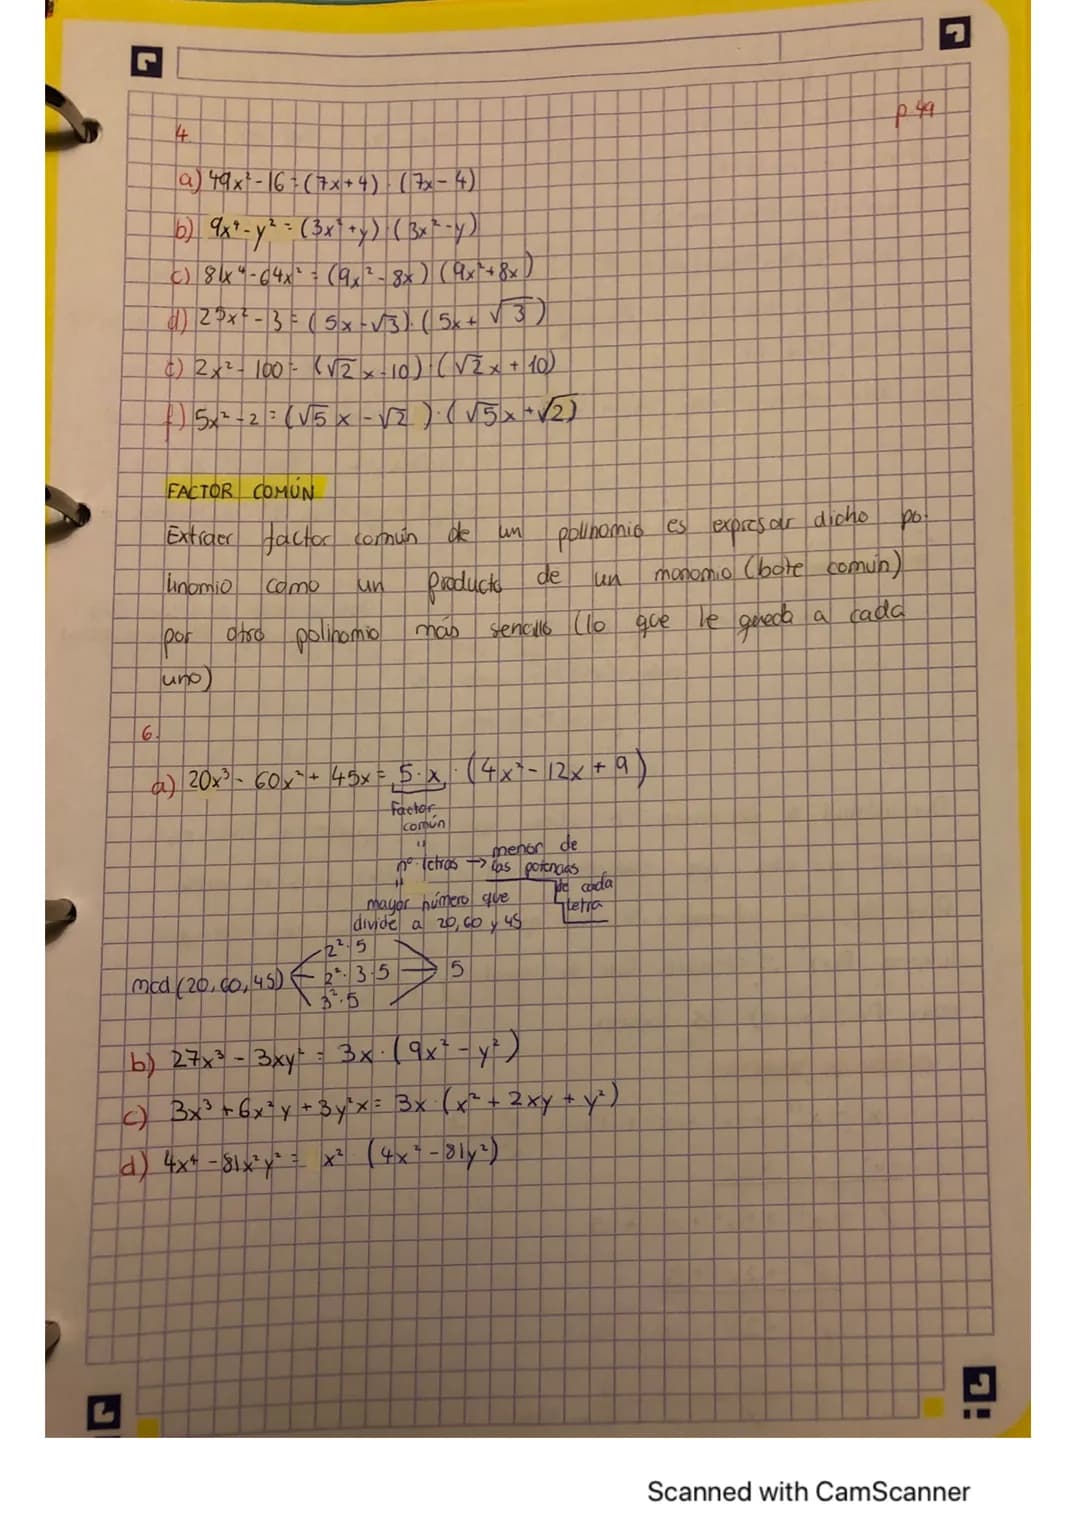 p 49
4.
a) 49x² - 16 = (7x + 4) · (7x - 4)
b) 9x⁴ - y² = (3x² + y) · (3x² - y)
c) 81x⁴ - 64x² = (9x² - 8x) (9x² + 8x)
d) 25x² - 3 = (5x - √3) · (5x + √3)
e) 2x² - 100 = (√2 x - 10) · (√2 x + 10)
f) 5x² - 2 = (√5 x - √2) · (√5x + √2)
FACTOR COMÚN
Extraer factor común de un polinomio es expresar dicho po-
linomio como un producto de un monomio (bote común)
por otro polinomio más sencillo (lo que le queda a cada
uno)
6.
a) 20x³ - 60x² + 45x = 5 · x · (4x² - 12x + 9)
Factor
común
"
nº · letras → menor de
las potencias
de cada
letra
"
mayor número que
divide a 20, 60 y 45
2² · 5
mcd (20, 60, 45) 2² · 3 · 5 → 5
3² · 5
b) 27x³ - 3xy² = 3x · (9x² - y²)
c) 3x³ + 6x²y + 3y²x = 3x · (x² + 2xy + y²)
d) 4x⁴ - 81x²y² = x² (4x² - 81y²)
Scanned with CamScanner